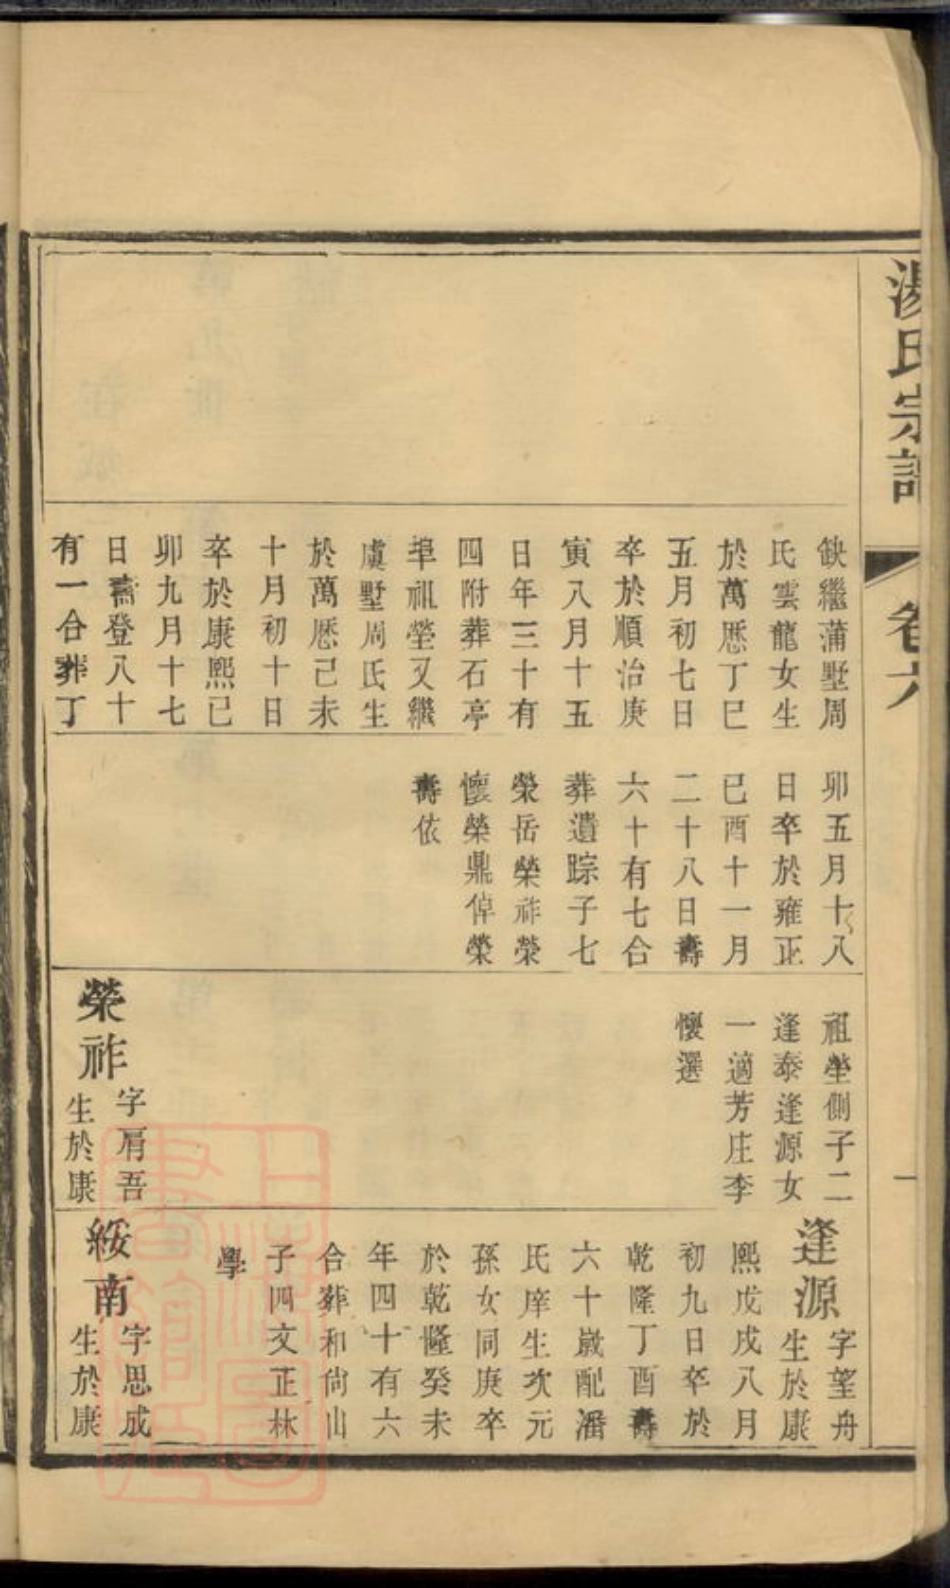 湯氏宗譜
卷六
一
缺繼蒲墅周
氏雲龍女生
於萬厯丁巳
五月初七日
卒於順治庚
寅八月十五
日年三十有
四附葬石亭
埠祖塋又繼
虞墅周氏生
於萬厯己未
十月初十日
卒於康熙己
卯九月十七
日壽登八十
有一合葬丁
卯五月十八
日卒於雍正
已酉十一月
二十八日壽
六十有七合
葬遺踪子七
榮岳榮祚榮
懷榮鼎倬榮
壽依
祖塋側子二
逢泰逢源女
一適芳庄李
懷選
榮祚
字肩吾
生於康
逢源
字望舟
生於康
熙戊戌八月
初九日卒於
乾隆丁酉壽
六十嵗配潘
氏庠生次元
孫女同庚卒
於乾隆癸未
年四十有六
合葬和尙山
子四文正林
學
綏南
字思成
生於康